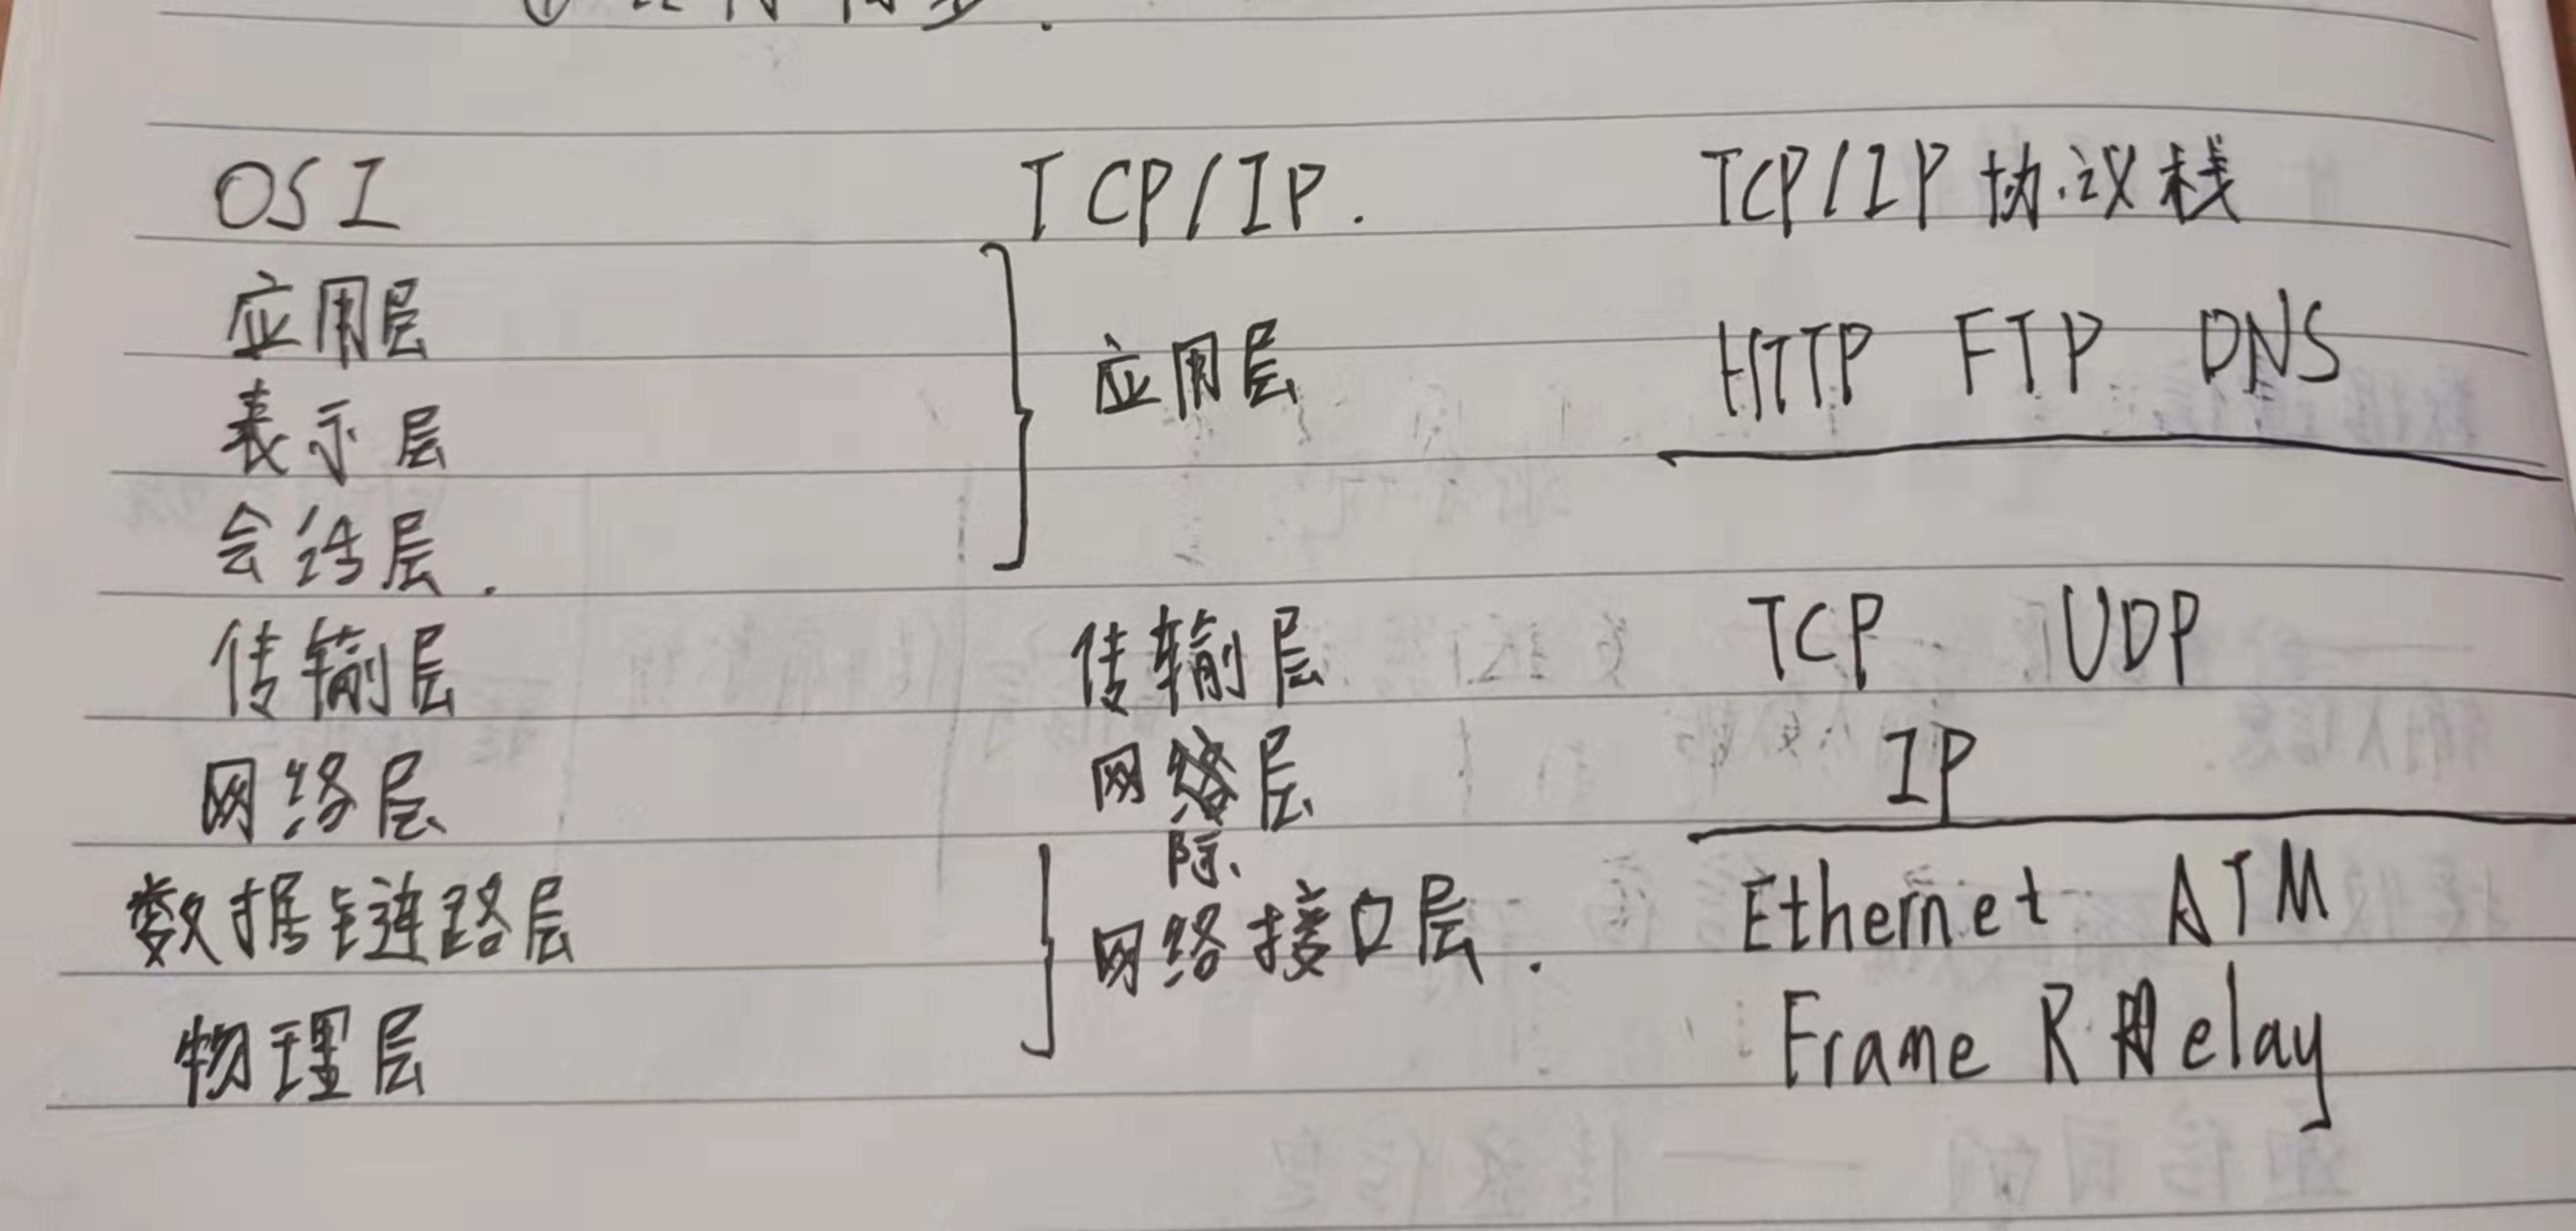 OSI TCP/IP. TCP/IP协议栈
应用层 应用层 HTTP FTP DNS
表示层
会话层.
传输层 传输层 TCP UDP
网络层 网际层 IP
数据链路层 网络接口层. Ethernet ATM
物理层 Frame Relay